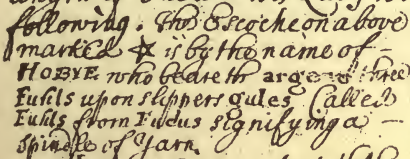 following. The Escocheon above
marked ☆ is by the name of -
HOBYE who beareth argent three
Fusils upon slippers gules Called
Fusils from Fusus signifying a -
Spindle of Yarn